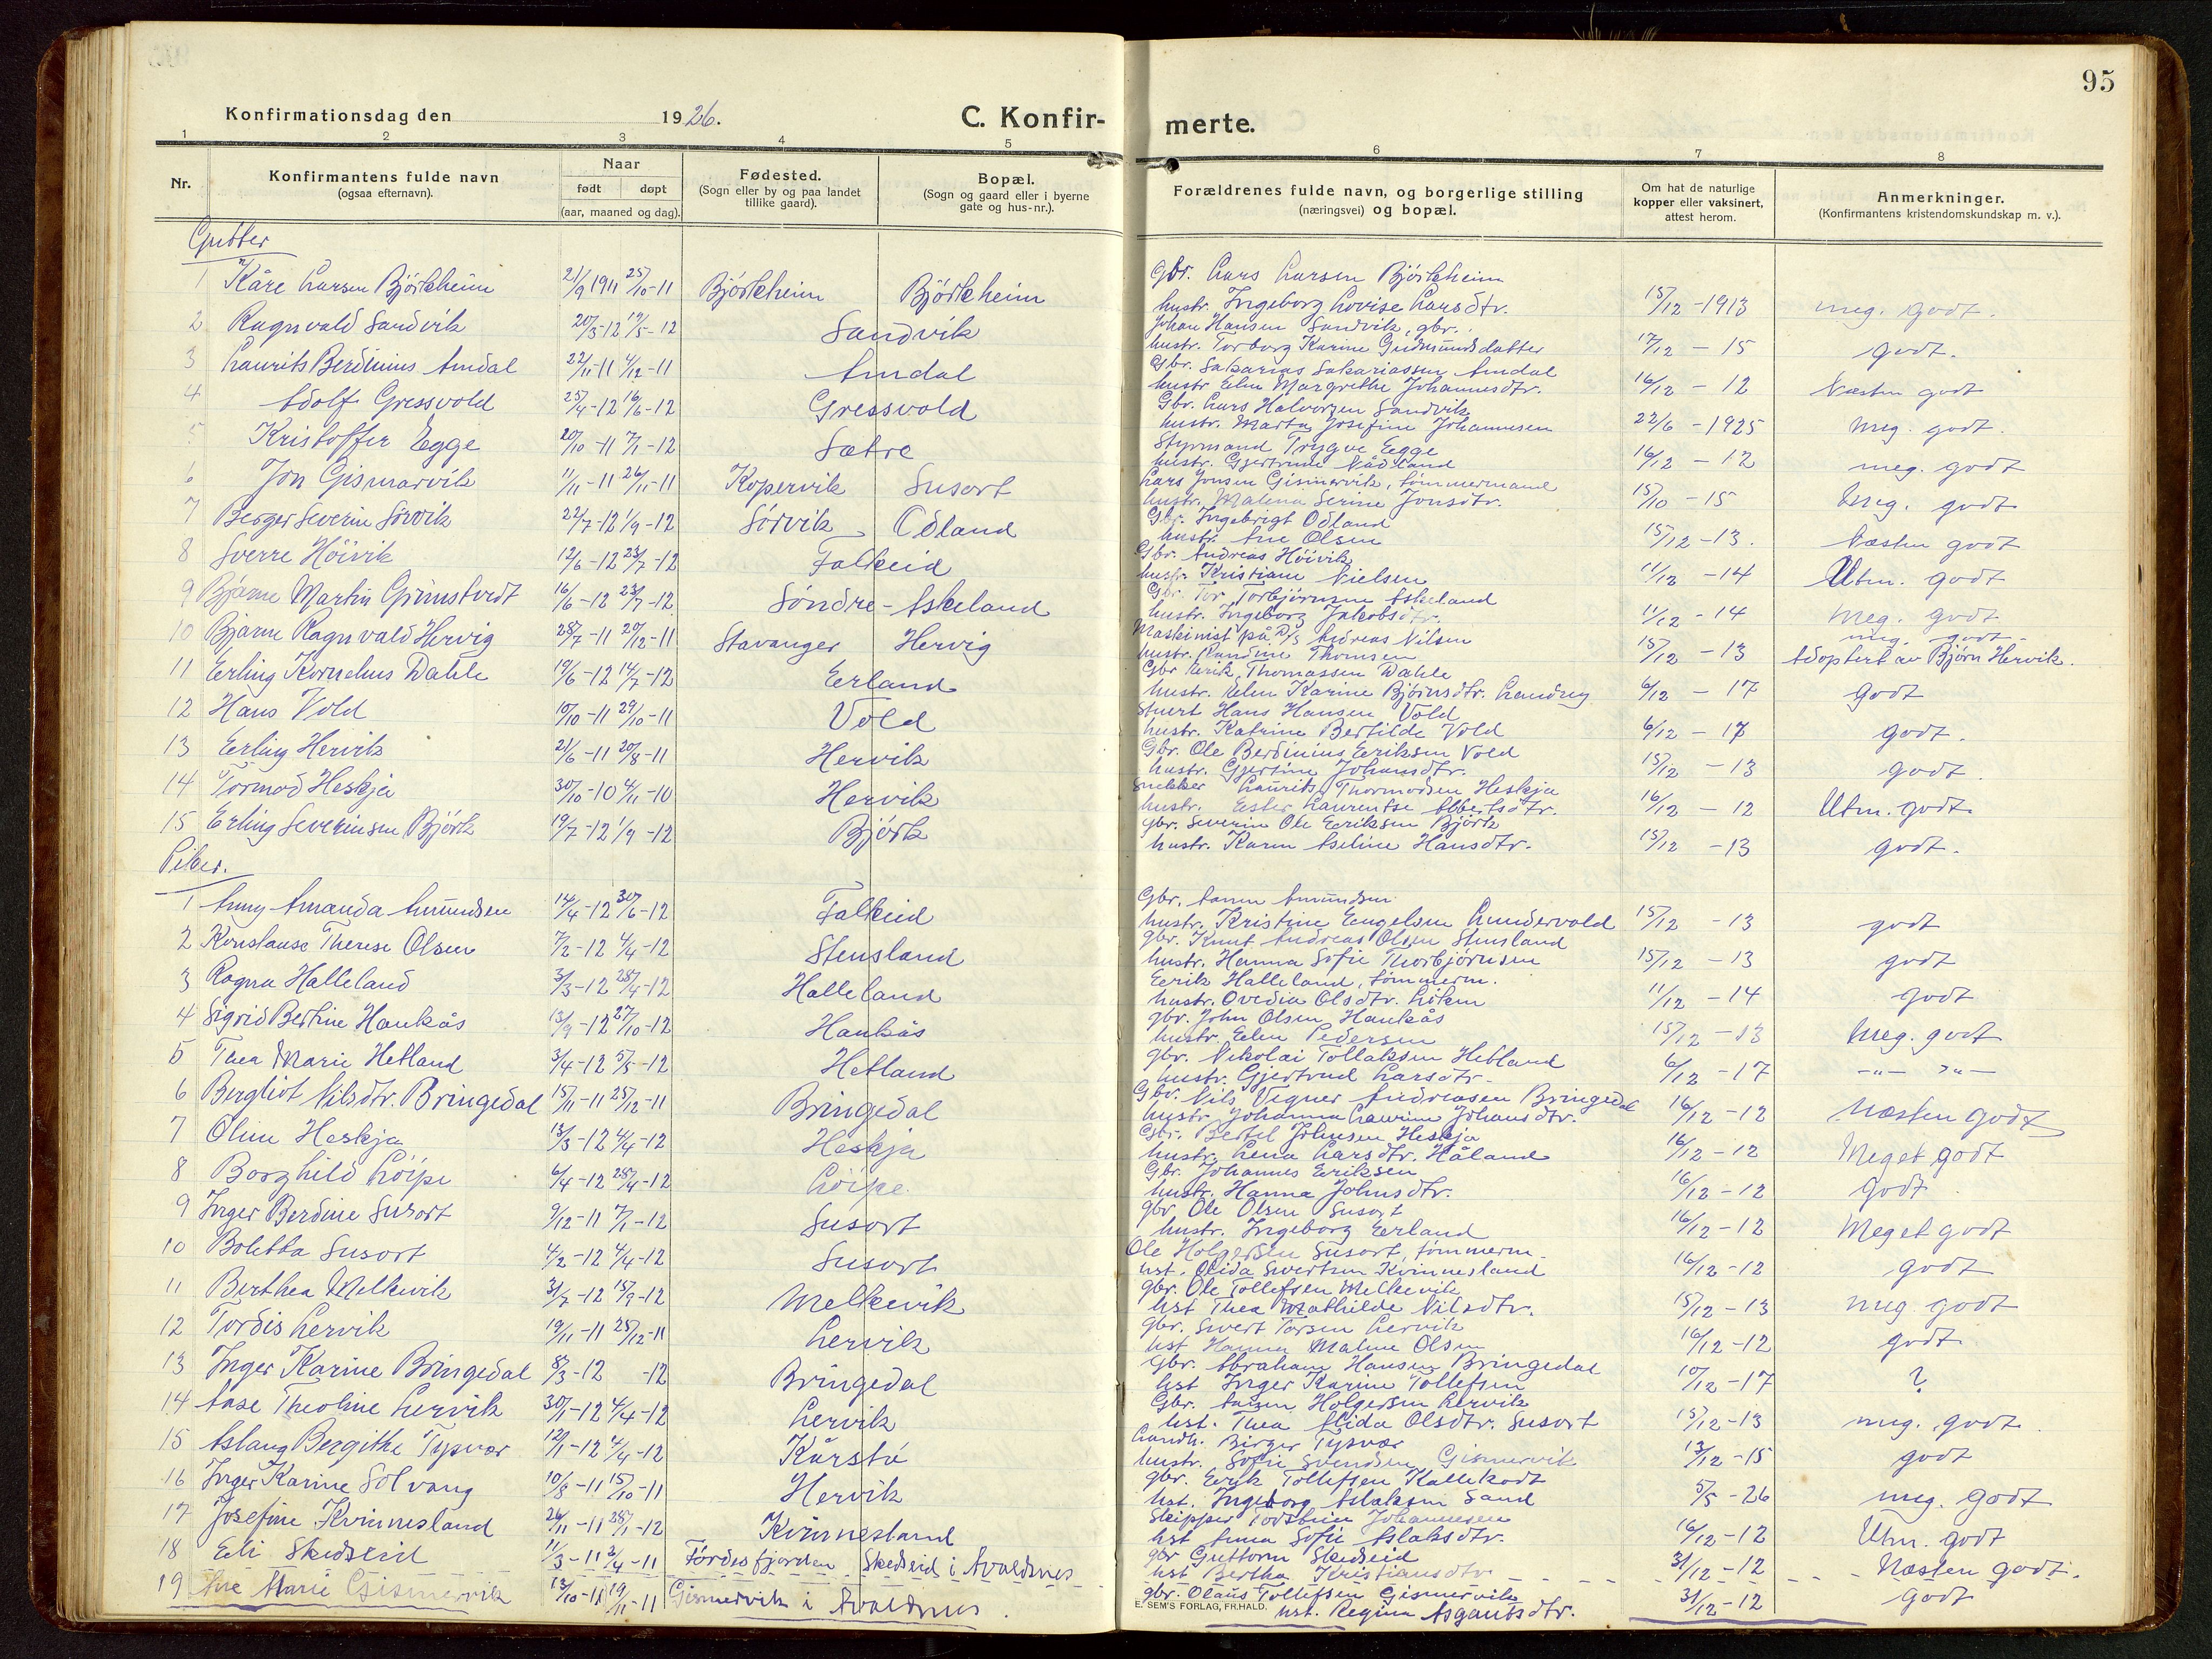 95
Konfirmationsdag den 1926.
C. Konfir-
merte.
1 2 3 4 5 6 7 8
Nr.
Konfirmantens fulde navn
(ogsaa efternavn).
Naar
født døpt
(aar, maaned og dag).
Fødested.
(Sogn eller by og paa landet
tillike gaard).
Bopæl.
(Sogn og gaard eller i byerne
gate og hus-nr.).
Forældrenes fulde navn, og borgerlige stilling
(næringsvei) og bopæl.
Om hat de naturlige
kopper eller vaksinert,
attest herom.
Anmerkninger.
(Konfirmantens kristendomskundskap m. v.).
Gutter
1 Kåre Larsen Björkheim 21/9 1911 25/10-11 Björkheim Björkheim Gbr. Lars Larsen Björkheim
hustr. Ingeborg Lovise Larsdtr. 15/12-1913 meg. godt.
2 Ragnvald Sandvik 20/3-12 19/5-12 Sandvik Johan Hansen Sandvik, gbr.
hustr. Torborg Karine Gudmundsdatter 17/12-15 godt.
3 Laurits Berdinius Amdal 22/11-11 4/12-11 Amdal Gbr. Sakarias Sakariassen Amdal
hustr Elen Margrethe Johannesdtr. 16/12-12 Næsten godt
4 Adolf Gressvold 25/4-12 16/6-12 Gressvold Gbr. Lars Halvorsen Sandvik
hustr. Marta Josefine Johannesen 22/6-1925 meg. godt.
5 Kristoffer Egge 20/10-11 7/1-12 Sætre Styrmand Trygve Egge
hustr. Gjertrine Nådland 16/12-12 meg. godt
6 Jon Gismarvik 11/11-11 26/11-11 Kopervik Susort Lars Jonsen Gismervik, tømmermand
hustr. Malena Serine Jonsdtr. 15/10-15 Meg. godt
7 Berger Severin Sörvik 22/7-12 1/9-12 Sörvik Odland Gbr. Ingebrigt Odland
hustr. Ane Olsen 15/12-13. Næsten godt
8 Sverre Höivik 12/6-12 23/7-12 Falkeid Gbr. Andreas Höivik
hustr. Kristiane Nielsen 11/12-14 Utm. godt
9 Bjarne Martin Grimstvedt 16/6-12 23/7-12 Söndre-Askeland Gbr. Tor Torbjörnsen Askeland
hustr. Ingeborg Jakobsdtr. 11/12-14 meg. godt
10 Bjarne Ragnvald Hervig 28/7-11 20/12-11 Stavanger Hervig Maskinist på D/S Andreas Nilsen
hustr. Randine Thomsen 15/12-13 meg. godt -
Adoptert av Björn Hervik.
11 Erling Kornelius Dahle 19/6-12 14/7-12 Eerland Gbr Eerik Thomassen Dahle
hustr. Elen Karine Björnsdtr. Landrug 6/12-17 godt
12 Hans Vold 10/10-11 29/10-11 Vold Stuert Hans Hansen Vold
hustr. Katrine Bertilde Vold 6/12-17 godt.
13 Erling Hervik 21/6-11 20/8-11 Hervik Gbr. Ole Berdinius Eeriksen Vold
hustr. Gjertine Johansdtr. 15/12-13 godt.
14 Tormod Heskja 30/10-10 4/11-10 Hervik Snekker Laurits Thormodsen Heskja
hustr. Ester Laurentse Abbertsdtr. 16/12-12 Utm. godt.
15 Erling Severinsen Björk 19/7-12 1/9-12 Björk Gbr. Severin Ole Eeriksen Björk
hustr. Karen Aseline Hansdtr. 15/12-13 godt.
Piker.
1 Anny Amanda Amundsen 14/4-12 30/6-12 Falkeid Gbr. Aamen Amundsen
hustr. Kristine Engelsen Lundervold 15/12-13 godt
2 Konstanse Therese Olsen 7/2-12 4/4-12 Stensland Gbr. Knut Andreas Olsen Stensland
hustr. Hanna Sofie Thorbjörnsen 15/12-13 godt
3 Ragna Halleland 3/3-12 28/4-12 Halleland Eerik Halleland, tømmerm.
hustr. Ovedia Olsdtr. Löken 11/12-14 godt
4 Sigrid Bertine Haukås 13/9-12 27/10-12 Haukås gbr. John Olsen Haukås
hustr. Elen Pedersen 15/12-13 Meg. godt
5 Thea Marie Hetland 3/4-12 5/5-12 Hetland gbr. Nikolai Tollaksen Hetland
hustr. Gjertrud Larsdtr. 6/12-17 -"- "-
6 Bergliot Nilsdtr. Bringedal 15/11-11 25/12-11 Bringedal Gbr. Nils Vegner Andreasen Bringedal
hustr. Johanna Laurine Johansdtr. 16/12-12 Næsten godt
7 Oline Heskja 13/3-12 4/4-12 Heskja Gbr. Bertel Johnsen Heskja
hustr. Lena Larsdtr. Håland 16/12-12 Meget godt
8 Borghild Löipe 6/4-12 28/4-12 Löipe Gbr. Johannes Eeriksen
hustr. Hanna Johnsdtr. 16/12-12 Godt.
9 Inger Berdine Susort 9/12-11 7/1-12 Susort gbr. Ole Olsen Susort
hustr. Ingeborg Eerland 16/12-12 Meget godt
10 Boletta Susort 4/2-12 4/4-12 Susort Ole Holgersen Susort, tømmerm.
hst. Olida Sivertsen Kvinnesland 16/12-12 godt
11 Berthea Melkevik 3/7-12 15/9-12 Melkevik gbr. Ole Tollefsen Melkevik
hst Thea Mathilde Nilsdtr. 15/12-13 meg. godt
12 Tordis Lervik 19/11-11 25/12-11 Lervik gbr. Sivert Torsen Lervik
hst Hanna Malene Olsen 16/12-12 godt
13 Inger Karine Bringedal 8/3-12 -12 Bringedal gbr. Abraham Hansen Bringedal
hst Inger Karine Tollefsen 10/12-17 ?
14 Aase Theoline Lervik 30/1-12 4/4-12 Lervik Gbr. Aamen Holgersen Lervik
hst. Thea Alida Olsdtr. Susort 15/12-13 meg. godt.
15 Aslaug Bergithe Tysvær 12/1-12 4/4-12 Kårstø Landh. Birger Tysvær
hustr. Sofie Svendsen Gismervik 13/12-15 godt
16 Inger Karine Solvang 10/8-11 15/10-11 Hervik gbr. Eerik Tollefsen Kallekodt
hst. Ingeborg Aslaksen Sand 5/5-26 meg. godt
17 Josefine Kvinnesland 26/11-11 28/1-12 Kvinnesland Skipper Torstein Johannesen
hst Anna Sofie Aslaksdtr. 16/12-12 Utm. godt
18 Eli Skedseid 11/3-11 2/4-11 Fördesfjorden Skedseid i Avaldsnes gbr Guttorm Skedseid
hst Bertha Kristiansdtr 31/12-12 Næsten godt.
19 Ane Marie Gismervik 13/10-11 19/11-11 Gismervik i Avaldsnes. gbr. Olaus Tollefsen Gismervik
hst. Regina Asgautsdtr. 31/12-12 Godt
E. SEM'S FORLAG, FR.HALD.